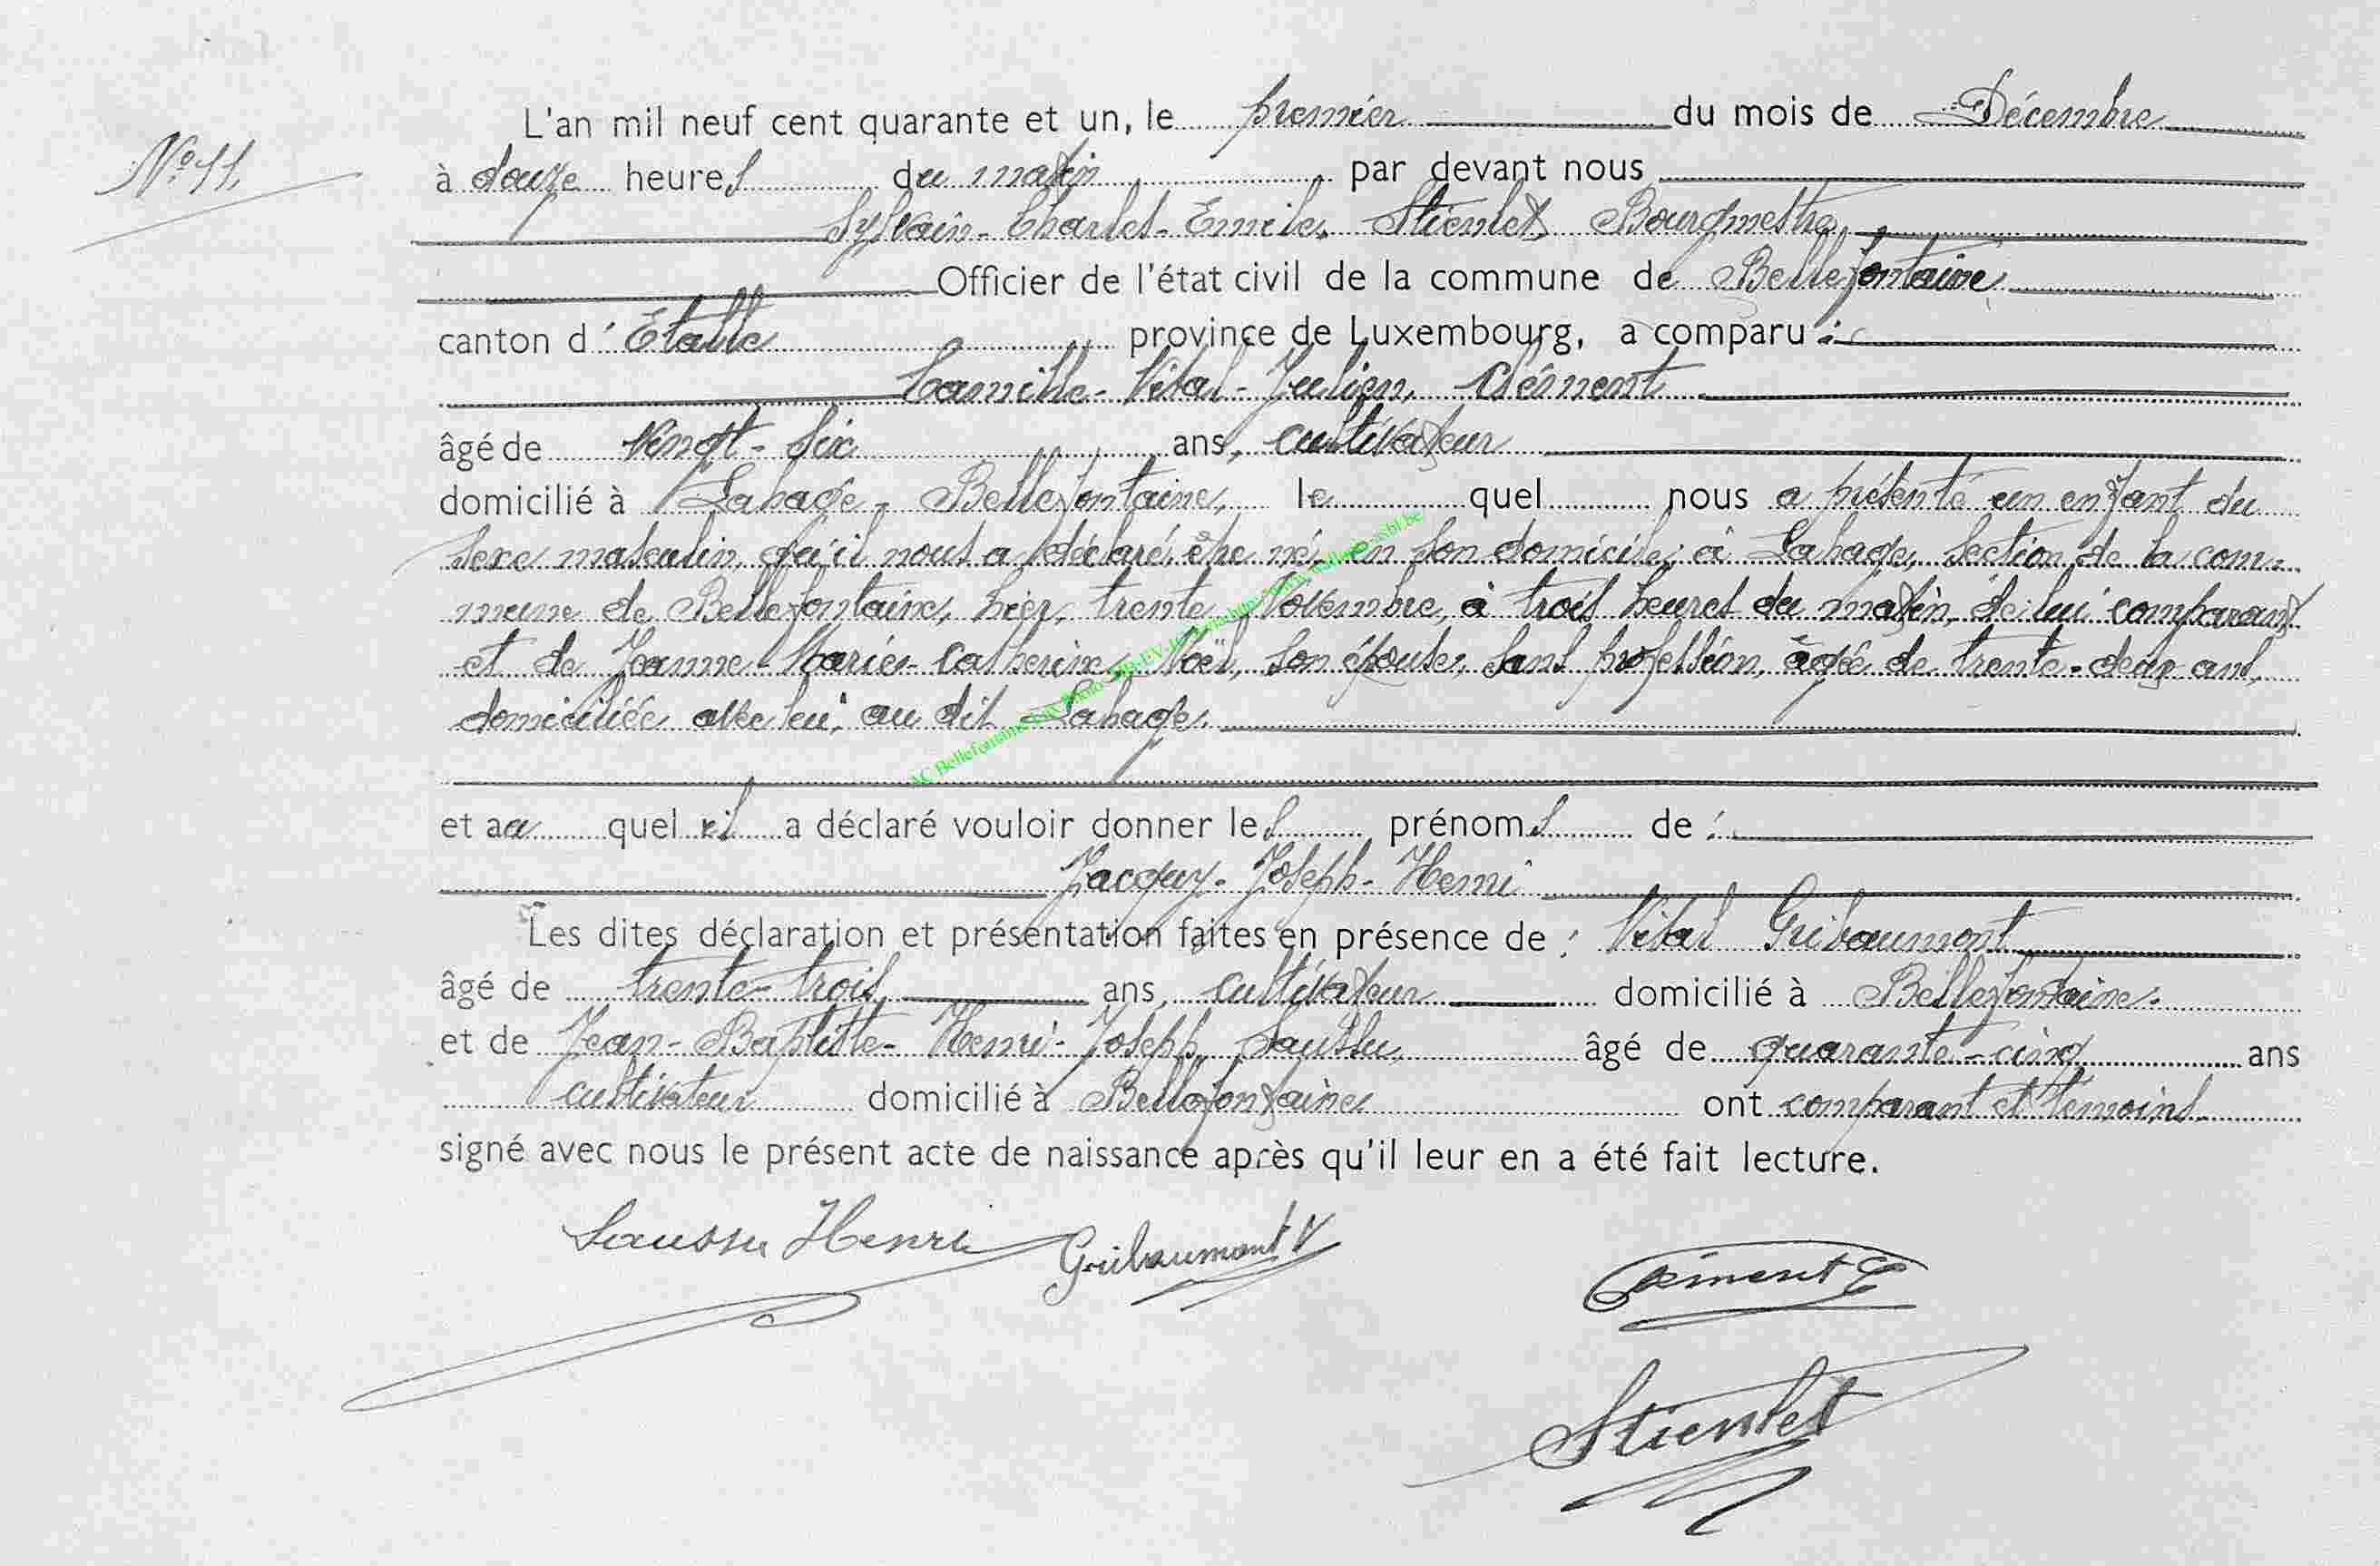 N° 11.
L'an mil neuf cent quarante et un, le premier du mois de Décembre
à douze heures du matin par devant nous
Sylvain-Charles-Emile, Stienlet, Bourgmestre,
Officier de l'état civil de la commune de Bellefontaine
canton d'Etalle province de Luxembourg, a comparu :
Camille-Vital-Julien, Clément
âgé de Vingt-six ans, cultivateur
domicilié à Lahage-Bellefontaine, le quel nous a présenté un enfant du
sexe masculin, qu'il nous a déclaré être né, en son domicile, à Lahage, section de la com-
mune de Bellefontaine, hier, trente Novembre, à trois heures du matin, de lui comparant
et de Jeanne-Marie-Catherine, Noël, son épouse, sans profession, âgée de trente-deux ans,
domiciliée avec lui, au dit Lahage.
AC Bellefontaine
et au quel il a déclaré vouloir donner les prénoms de :
Jacquy-Joseph-Henri
Les dites déclaration et présentation faites en présence de : Vital Guibaumont
âgé de trente-trois ans, cultivateur domicilié à Bellefontaine.
et de Jean-Baptiste-Henri-Joseph, Saussu, âgé de quarante-cinq ans
cultivateur domicilié à Bellefontaine ont comparant et témoins
signé avec nous le présent acte de naissance après qu'il leur en a été fait lecture.
Saussu Henri Guibaumont V
Clément C
Stienlet